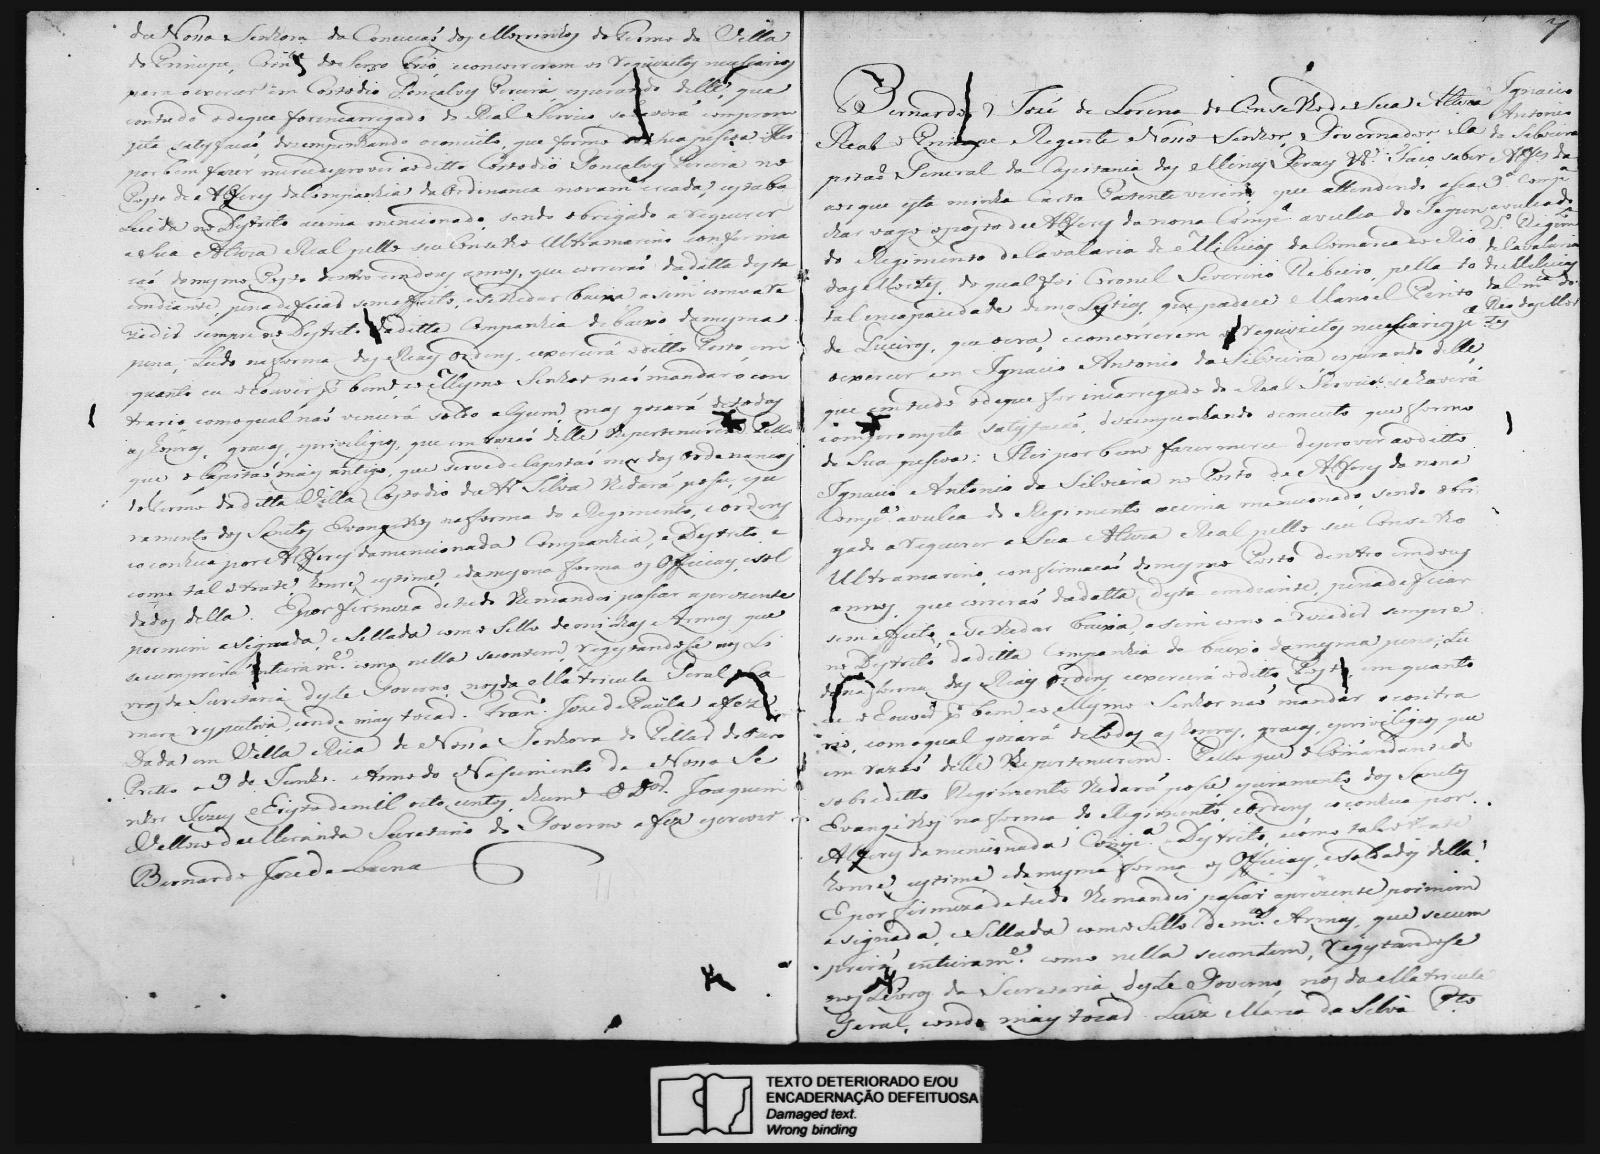 de Nossa Senhora da Conceicaõ dos Morrinhos do Termo da Villa
do Principe, do Serro Frio, e concorrerem os requizitos necessarios
para o exercer em Costodio Gonçalves Pereira, esperando delle, que
em tudo o de que for incarregado do Real Servico se haverá com prom
pta satisfacaõ, dezempenhando o conceito, que formo de sua pessoa: Hei
por bem fazer merce de prover ao ditto Costodio Gonçalves Pereira no
Posto de Alferes da Companhia da Ordinanca novam.e creada, e estabe
lecida no Destricto acima mencionado, sendo obrigado a requerer
a Sua Alteza Real pello seu Conselho Ultramarino confirma
caõ do mesmo Posto dentro em dous annos, que correraõ da datta desta
em diante, pena de ficar sem effeito, e se lhe dar baixa, assim como a te
rezidir sempre no Destricto da ditta Companhia de baixo da mesma
pena, tudo na forma das Reaes Ordens, e exercerá o ditto Posto em
quanto eu o houver p.r bem, e o mesmo Senhor naõ mandar o con
trario, com o qual naõ vencerá soldo algum, mas gozará de todas
as honras, gracas, e privilegios, que em razaõ delle lhe pertencerem. Pello
que o Capitaõ mais antigo, que serve de Capitaõ mor das Ordenancas
do Termo da ditta Villa Costodio da Silva lhe dará posse, e ju
ramento dos Santos Evangelhos na forma do Regimento, e ordens
e o conheca por Alferes da mencionada Companhia, e Destricto, e
como tal o trate, honre, e estime, e da mesma forma os Officiaes, e sol
dados della. E por firmeza de tudo lhe mandei passar a prezente
por mim assignada, e sellada com o sello de minhas Armas, que
se cumprirá inteiram.e como nella se contem, registandose nos Li
vros da Secretaria deste Governo, nos da Matricula Geral, e Ca
mara respectiva, e onde mais tocar. Fran.co Joze de Paula a fez.
Dada em Villa Rica de Nossa Senhora do Pillar do Ouro
Pretto a 9 de Junho. Anno do Nascimento de Nosso Se
nhor Jezus Christo de mil oito centos e hum. O D.or Joaquim
Velloso de Miranda Secretario do Governo a fez escrever
Bernardo Joze de Lorena
7
Bernardo Joze de Lorena do Conselho de Sua Alteza
Real o Principe Regente Nosso Senhor, Governador, e Ca
pitaõ General da Capitania das Minas Geraes &.a Faco saber
aos que esta minha Carta Patente virem, que attendendo a se a
char vago o posto de Alferes da nona Comp.a avulca do Segun
do Regimento de Cavalaria de Milicias da Comarca do Rio
das Mortes, do qual he Coronel Severino Ribeiro, pella to
tal incapacidade de molestias, que padece Manoel
de Queiros, que o era, e concorrerem os requizitos necessarios p.a
o exercer em Ignacio Antonio da Silveira, esperando delle,
que em tudo o de que for incarregado do Real Servico se haverá
com prompta satisfacaõ, dezempenhando o conceito que formo
de Sua pessoa: Hei por bem fazer merce de prover ao ditto
Ignacio Antonio da Silveira no Posto de Alferes da nona
Comp.a avulca do Regimento acima mencionado, sendo obri
gado a requerer a Sua Alteza Real pello seu Conselho
Ultramarino confirmacaõ do mesmo Posto dentro em dous
annos, que correraõ da datta desta em diante, pena de ficar
sem effeito, e se lhe dar baixa, assim como a rezidir sempre
no Destricto da ditta Companhia de baixo da mesma pena, tu
do na forma das Reaes Ordens, e exercerá o ditto Posto, em quanto
eu o houver p.r bem, e o mesmo Senhor naõ mandar o contra
rio, com o qual gozará de todas as honras, gracas, e privilegios, que
em razaõ delle lhe pertencerem. Pello que o Comandante do
sobreditto Regimento lhe dará posse, e juramento dos Santos
Evangelhos na forma do Regimento, e ordens, e o conheca por
Alferes da mencionada Comp.a e Destricto, e como tal o trate
honre, e estime, e da mesma forma os Officiaes, e soldados della.
E por firmeza de tudo lhe mandei passar a prezente por mim
assignada, e sellada com o sello de m.as Armas, que se cum
prirá inteiram.e como nella se contem, registandose
nos Livros da Secretaria deste Governo, nos da Matricula
Geral, e onde mais tocar. Luis Maria da Silva Pto
Ignacio
Antonio
da Silveira
Alf.es da
9.a Comp.a
avulca do
2.o Regim.to
de Cavalaria
de Milicias
da Com.ca do
Rio das Mor
tes
TEXTO DETERIORADO E/OU
ENCADERNAÇÃO DEFEITUOSA
Damaged text.
Wrong binding